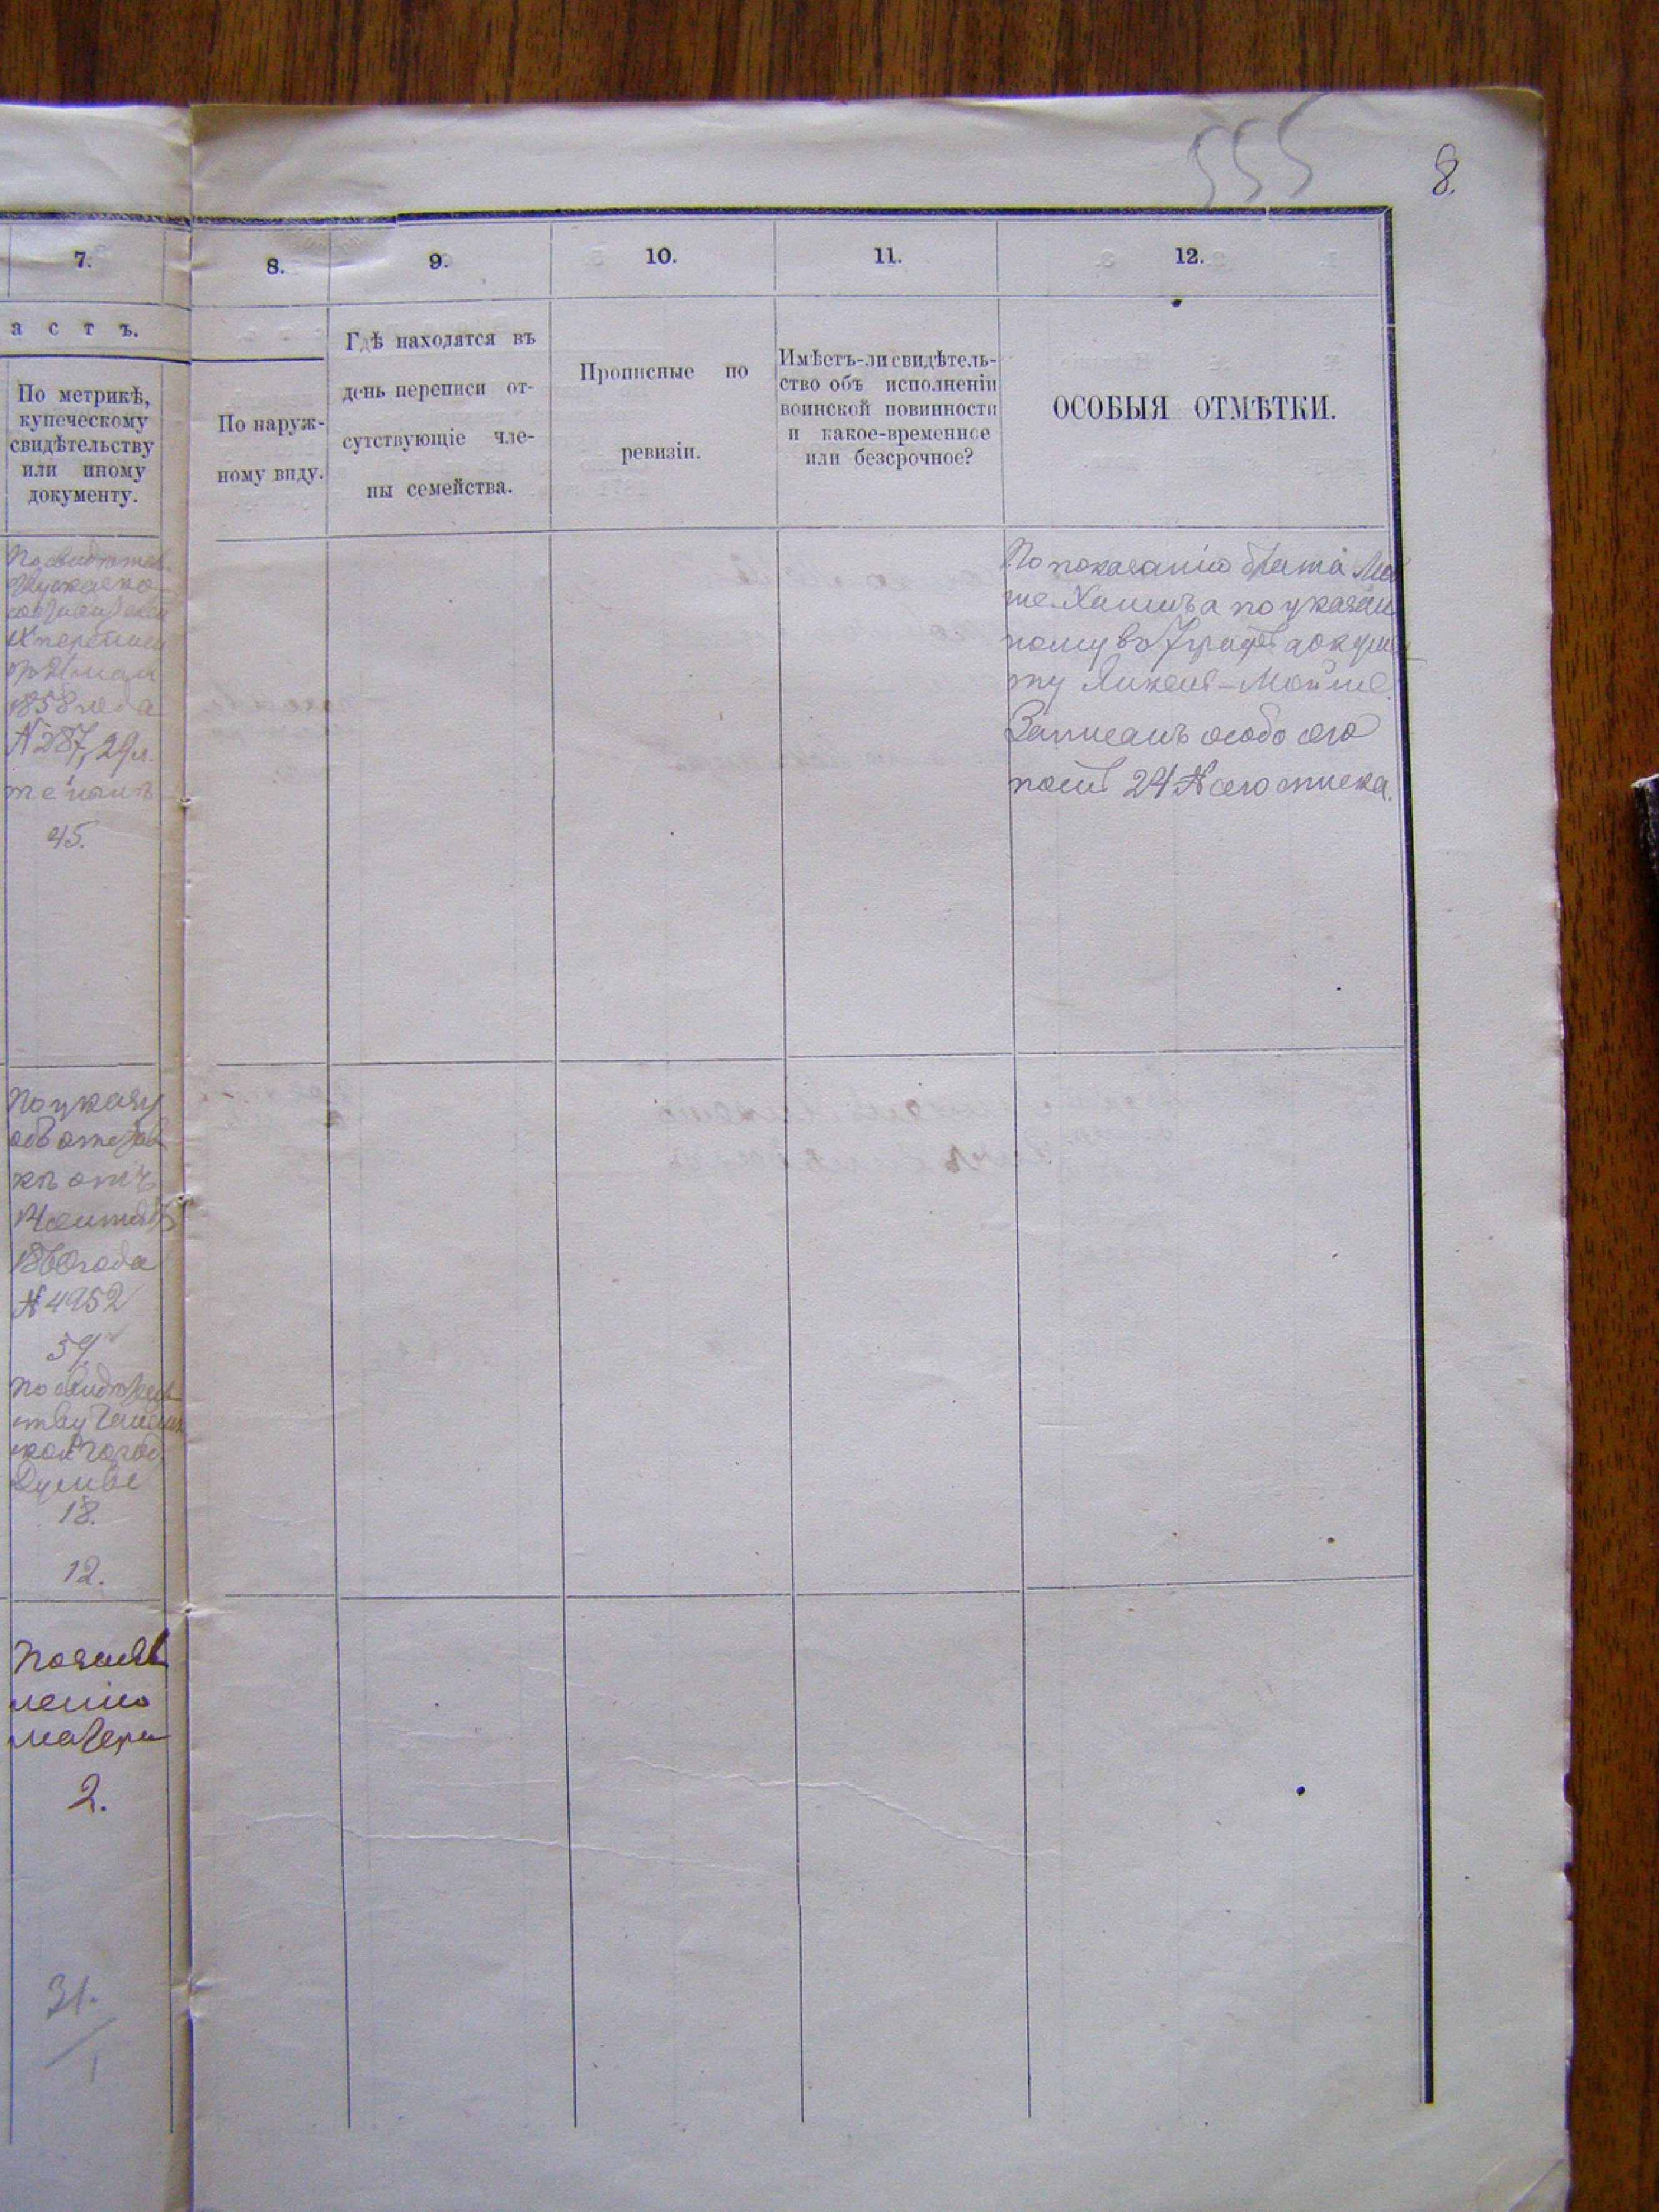 555
8.
7.
8.
9.
10.
11.
12.
а с т ъ.
По метрикѣ,
купеческому
свидѣтельству
или иному
документу.
По наруж-
ному виду.
Гдѣ находятся въ
день переписи от-
сутствующіе чле-
ны семейства.
Прописные по
ревизіи.
Имѣетъ-ли свидѣтель-
ство объ исполненіи
воинской повинности
и какое-временное
или безсрочное?
ОСОБЫЯ ОТМѢТКИ.
1858 года
№ 287, 29 л.
45.
По показанію брата
а по указан
ному въ 7 графѣ докуме
ту Янкель-Мойше
Записанъ особо
24 № сего списка.
По указу
объ отстав
къ отъ
1860 года
№ 4952
59
По свидѣтель
ству
Думы
18.
12.
По заяв
ленію
матери
2.
31.
1